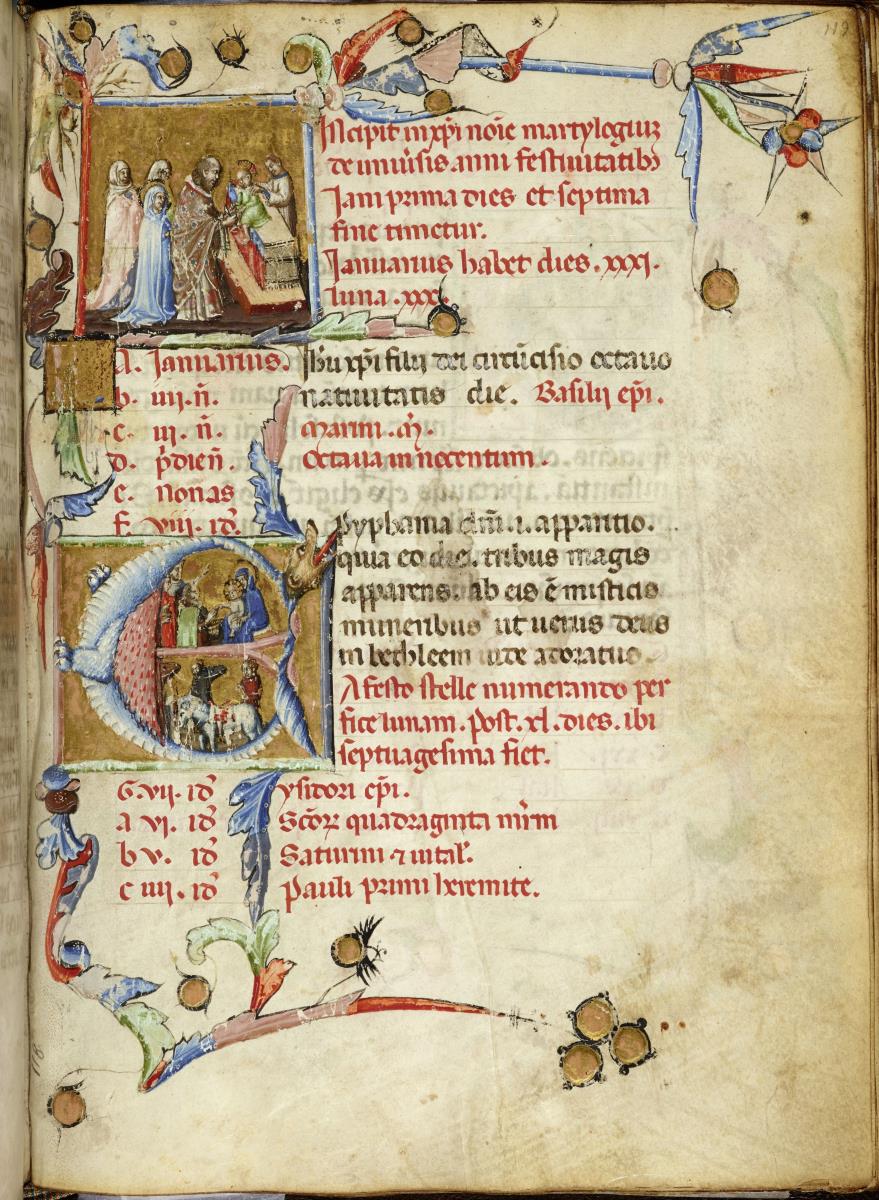 Incipit in xp̄i noīe martylogiuꝫ
de uniũsis anni festiuitatibꝫ
Iam prima dies et septima
fine timetur.
Ianuarius habet dies .xxxi.
luna .xxx.
A. Ianuarius. Ihū xp̄i filij dei circũcisio octauo
b. iiij. n̄. natiuitatis die. Basilij ep̄i.
c. iij. n̄. Marini. m̄.
d. p̄dien̄. Octaua innocentum.
e. nonas
f. viij. id᷒. Epyphania dn̄i .i. apparitio.
quia eo die. tribus magis
apparens. ab eis ē misticis
muneribus ut uerus deus
in bethleem adoratus.
A festo stelle numerando per
fice lunam. Post .xl. dies. ibi
septuagesima fiet.
G. vij. id᷒ ysidori ep̄i.
a vj. id᷒ Sc̄oꝝ quadraginta mr̄m
b v. id᷒ Saturini ⁊ uital̄.
c iiij. id᷒ Pauli primi heremite.